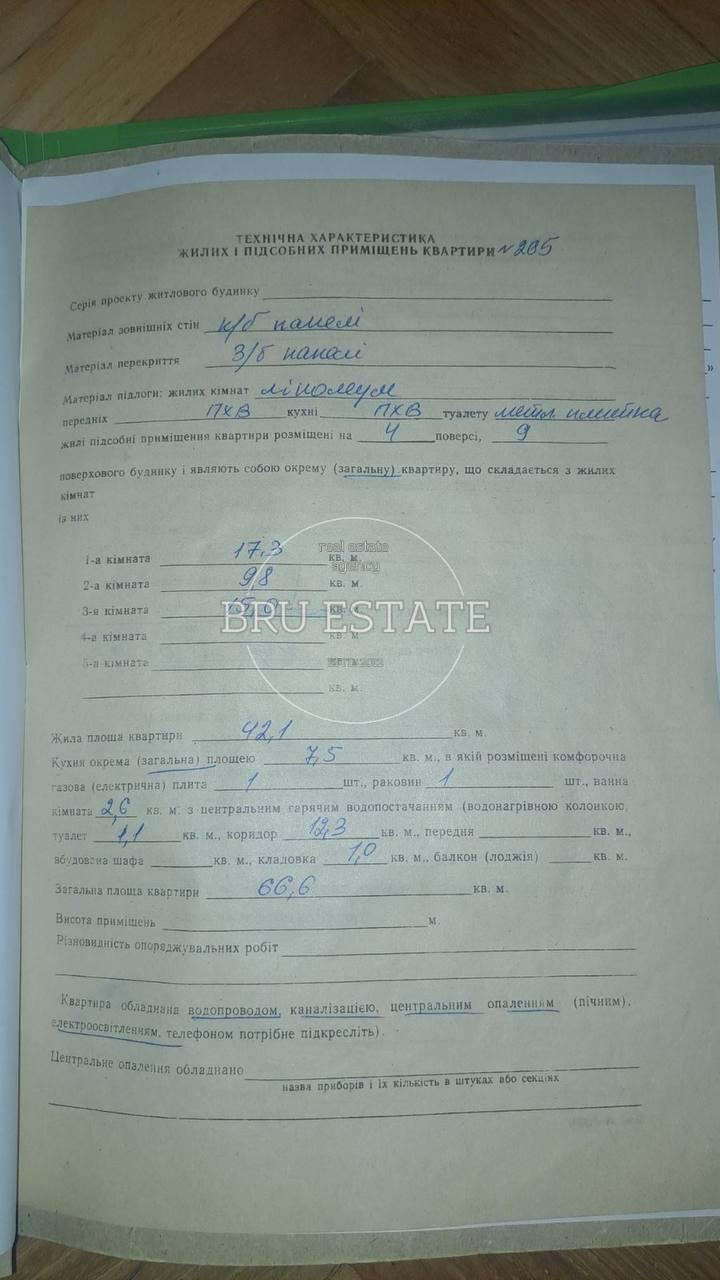 ТЕХНІЧНА ХАРАКТЕРИСТИКА
ЖИЛИХ І ПІДСОБНИХ ПРИМІЩЕНЬ КВАРТИРИ №205
Серія проекту житлового будинку
Матеріал зовнішніх стін к/б панелі
Матеріал перекриття З/б панелі
Матеріал підлоги: жилих кімнат лінолеум
передніх ПХВ кухні ПХВ туалету метл. плитка
жилі підсобні приміщення квартири розміщені на 4 поверсі, 9
поверхового будинку і являють собою окрему (загальну) квартиру, що складається з жилих
кімнат
із них
1-а кімната 17,3 кв. м.
2-а кімната 9,8 кв. м.
3-я кімната 15,0 кв. м.
4-а кімната кв. м.
5-а кімната кв. м.
кв. м.
real estate
agency
BRU ESTATE
Жила площа квартири 42,1 кв. м.
Кухня окрема (загальна) площею 7,5 кв. м., в якій розміщені комфорочна
газова (електрична) плита 1 шт., раковин 1 шт., ванна
кімната 2,6 кв. м. з центральним гарячим водопостачанням (водонагрівною колонкою,
туалет 1,1 кв. м., коридор 12,3 кв. м., передня кв. м.,
вбудована шафа кв. м., кладовка 1,0 кв. м., балкон (лоджія) кв. м.
Загальна площа квартири 66,6 кв. м.
Висота приміщень м.
Різновидність опоряджувальних робіт
Квартира обладнана водопроводом, каналізацією, центральним опаленням (пічним),
електроосвітленням, телефоном потрібне підкресліть).
Центральне опалення обладнано
назва приборів і їх кількість в штуках або секціях